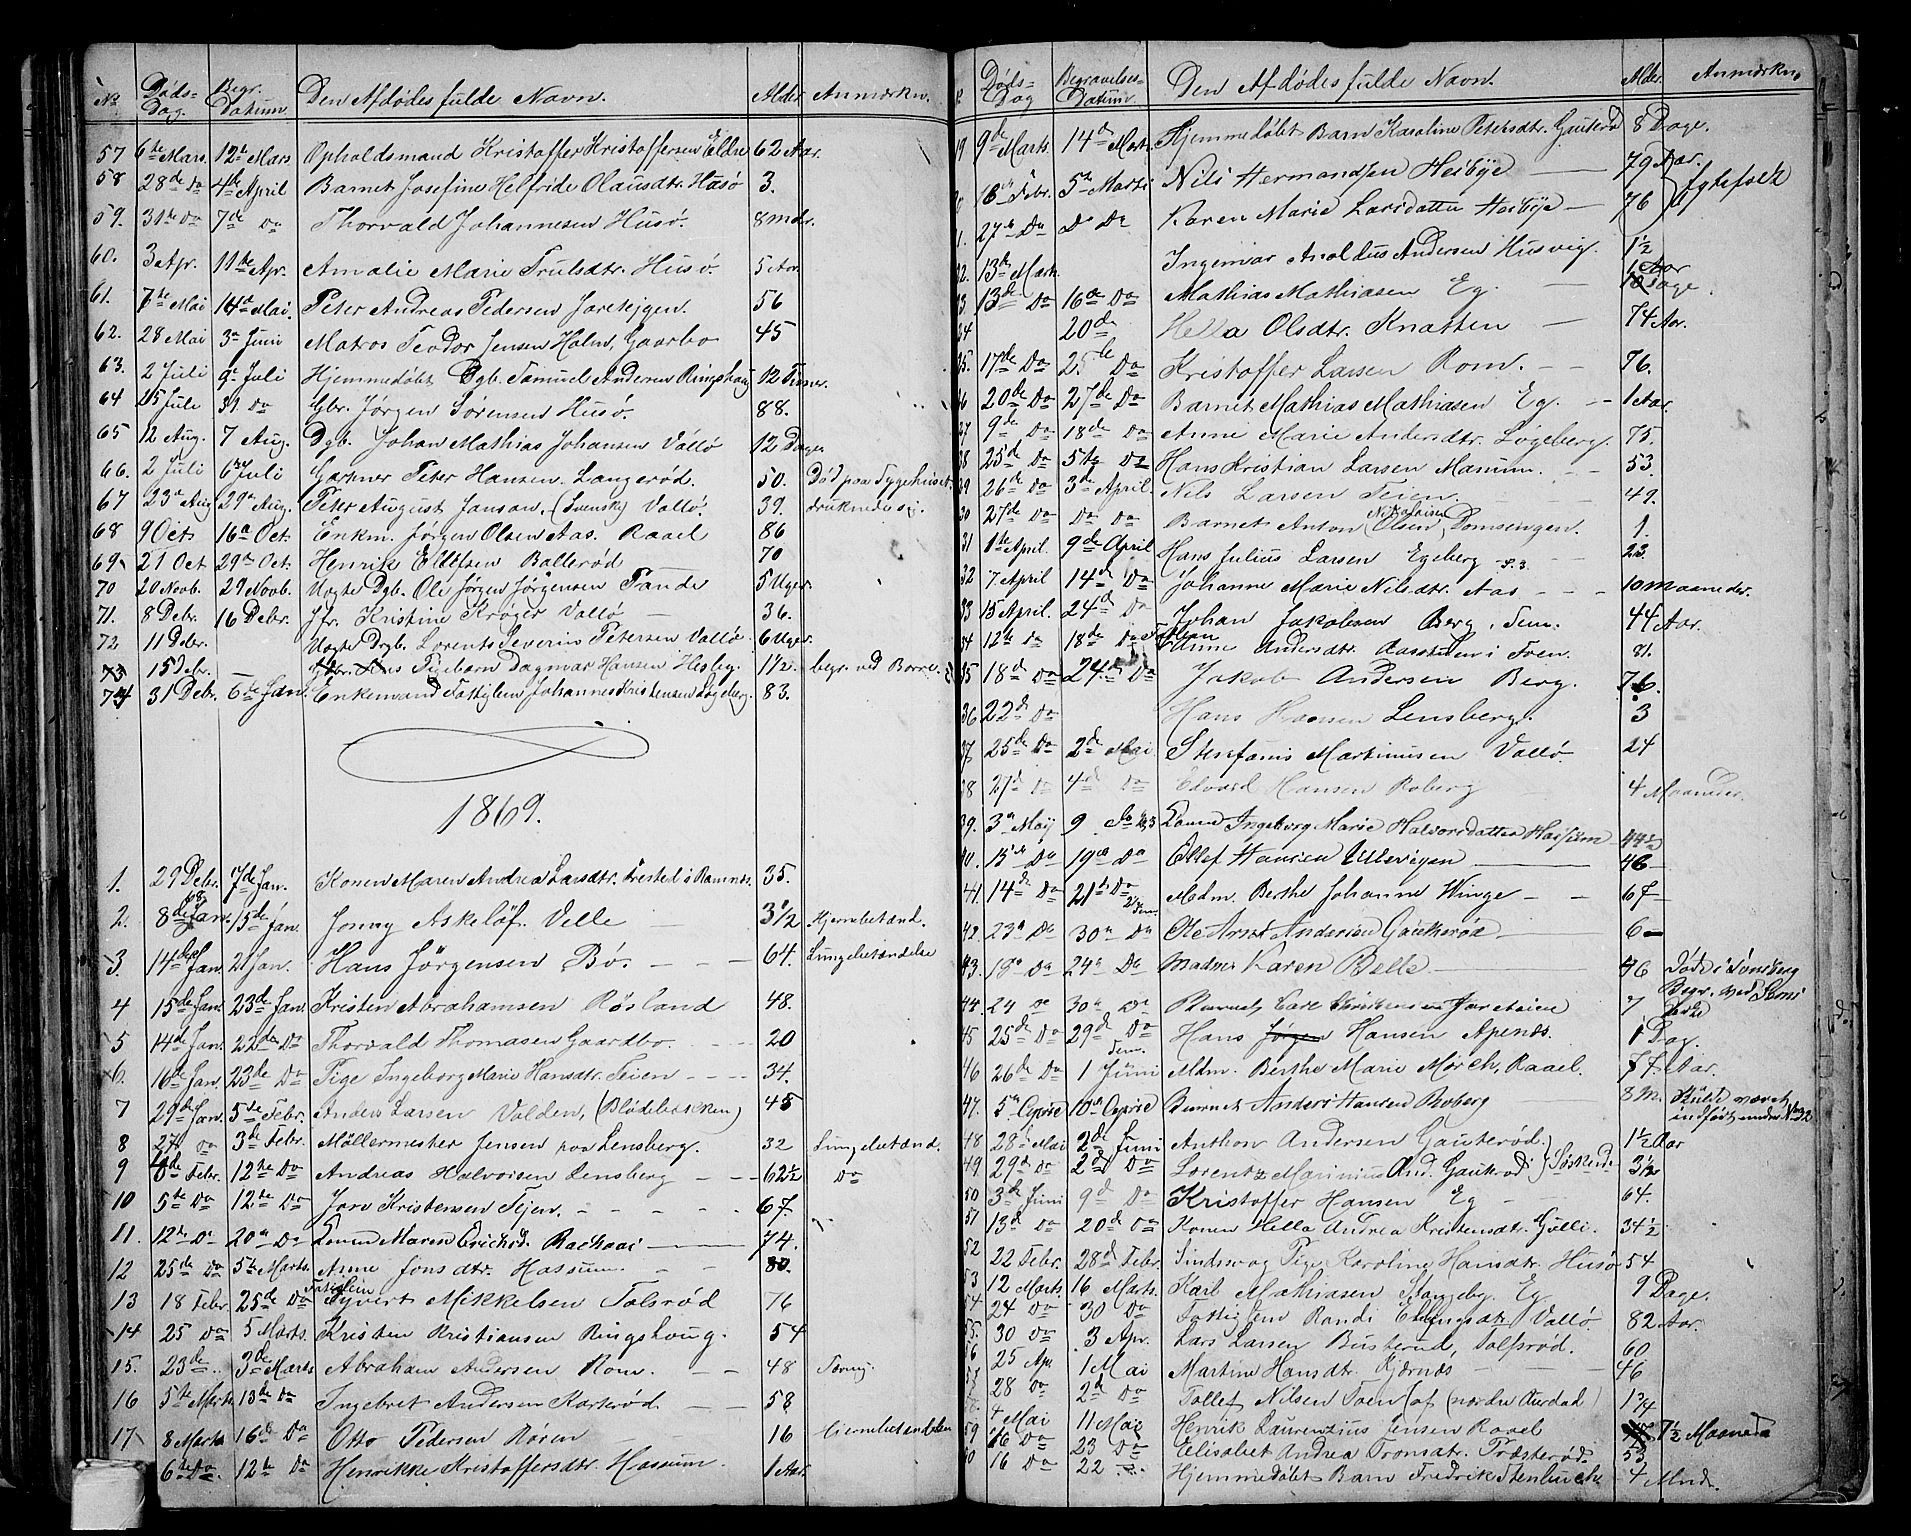 No Døds-Dag. Begr. Datum. Den Afdødes fulde Navn. Alder Anmærkn.
57 6te Mars. 12te Mars Opholdsmand Kristoffer Kristoffersen Eldre 62 Aar.
58 28de Do 4de April Barnet Josefine Helfride Olausdtr. Husø 3.
59. 31te Do 7de Do Thorvald Johannesen Husø. 8 Mdr.
60. 3 Apr. 11te Apr. Amalie Marie Trulsdtr. Husø 5 Aar.
61. 7de Mai 14de Mai. Peter Andreas Pedersen Jaretejgen. 56
62. 28 Mai 3de Juni Matros Teodor Jensen Holm, Gaarbo 45
63. 2 Juli 9de Juli Hjemmedøbt Dgb. Samuel Andersen Ringshaug 12 Timer.
64 25 Juli 31 Do Gbr. Jørgen Sørensen Husø. 88.
65 12 Aug. 7 Aug. Dgb. Johan Mathias Johansen Vallø 12 Dage
66. 2 Juli 6 Juli Gartner Peter Hansen. Langerød. 50. Død paa Sygehuset.
67 23de Aug 29de Aug. Peter August Janson, (Svensk) Vallø. 39. druknede sig.
68 9 Oct. 16de Oct. Enkm. Jørgen Olsen Aas. Raael 86
69 21 Oct 29de Oct. Henrik Ellefsen Ballerød 70
70 20 Novb. 29 Novb. Uægte Dgb. Ole Jørgen Jørgensen Tande 5 Uger.
71. 8 Debr. 16 Debr. Jfr. Kristine Krøger Vallø — 36.
72 11 Debr. Uægte Drgb. Lorents Severin Petersen Vallø 6 Uger.
73 15 Debr. — Pigebarn Dagmar Hansen Hesby. 1 1/2 begr. ved Borre
74 31 Debr. 6te Jan. Enkemand Fattiglem Johannes Kristensen Løgeberg. 83.
1869.
1. 29 Debr. 68 7de Jan. Konen Maren Andrea Larsdtr. Firested i Ramnes 35.
2. 8de Jan. 15de Jan. Jonny Askeløf. Velle 3 1/2 Hjernebetænd.
3. 14de Jan. 21 Jan. Hans Jørgensen Bø. - - - 64. Lungebetændelse
4 15de Jan. 23de Jan. Kristen Abrahamsen Røsland 48.
5 14de Jan. 22de Do Thorvald Thomasen Gaardbo. 20
6. 16de Jan. 23de Do Pige Ingeborg Marie Hansdtr. Teien - - - 34.
7 29de Jan. 5te Febr. Anders Larsen Valden, (Blødebakken) 45
8 27de Do 3de Febr. Møllermester Jensen paa Lensberg. 32 Lungebetænd.
9 6de Febr. 12te Do Andreas Halvorsen Lensberg - - - 62 1/2 Do
10 5te Do 12te Do Jørn Kristensen Tejen. - - - 67.
11. 12te Do 20de Do Konen Maren Erichsd. Bachaas — 74.
12 25de Do 5te Marts. Anne Jonsdtr. Hassum. - - 80.
13 18 Febr. 25de Do Fattiglem Syvert Mikkelsen Tolsrød 76
14 25 Do 5 Marts. Kristen Kristiansen Ringshoug. - 54
15. 23de 3de Marts Abraham Andersen Rom. - - 48 Tæring
16 5te Marts 13de Do Ingebret Andersen Karterød. - - 58
17 8 Marts 16de Do Otto Pedersen Røren 16 Hjernebetændelse
6te Do. 12te Do Henrikke Kristoffersdtr. Hassum. 1 Aar.
Døds-Dag Begravelses-Datum. Den Afdødes fulde Navn. Alder. Anmærkn.
19 9de Marts. 14de Marts. Hjemmedøbt Barn Karoline Petersdtr. Gauterød 8 Dage.
16de Febr. 5te Marts Nils Hermandsen Heibye — 79 Aar. } Egtefolk
1. 27de Do Do Do Karen Marie Larsdatter Heibye — 76
22. 13de Marts Ingemar Anoldus Andersen Husvig. 1 1/2 Aar
23. 13de Do 16de Do Mathias Mathiasen Eg. — Dage.
24 20de Hella Olsdtr. Knatten — 74 Aar.
25. 17de Do 25de Do Kristoffer Larsen Rom. - - 76.
26 20de Do 27de Do Barnet Mathias Mathiasen Eg. - - 1 Aar.
27 9de Do 18de Do Anne Marie Andersdtr. Løgeberg. 75.
28 25de Do 5te Do Hans Kristian Larsen Masum. - - 53.
29 26de Do 3de April. Nils Larsen Teien. 49.
30 27de Do Do Do Barnet Anton Nikolaisen (Olsen) Domsengen. 1.
31 1te April. 9de April Hans Julius Larsen Egeberg 23.
32 7 April 14de Do Johanne Marie Nilsdtr. Aas - - - 10 Maaneder.
33 15 April. 24de Do Johan Jakobsen Berg. Sem. 44 Aar.
34 12te Do 18de Do Anne Andersdtr. Aasstuen i Foen 81.
35 18de Do 24de Do Jakob Andersen Berg. 76.
36 22de Do Hans Hansen Lensberg. 3
37. 25de Do 2de Mai Steffanis Martinusen Vallø. 24
38 27de Do 4de Do Edvard Hansen Roberg — 4 Maaneder.
39. 3de Maij 9 Do Konen Ingeborg Marie Halvorsdatter Hassum 44 1/2
40. 15de Do 19de Do Ellef Hansen Ullevigen 46
41. 14de Do 21de Do Mdm. Berthe Johanne Winge - 67
42. 23de Do 30de Do Ole Arnt Andersen Gauterød 6
43. 19de Do 24de Do Madme Karen Belle 46 Døde i Tønsberg Begr. ved Sem
44. 24 Do 30de Do Barnet Carl Christensen Jareteien 7
45 25de Do 29de Do Hans Jørgen Hansen Apenæs. 1 Dag.
46 26de Do 1 Juni Mdm. Berthe Marie Mørch, Raael. 77 Aar.
47. 5de April 10de April Barnet Anders Hansen Roberg 8 M. Skulde været indført under No 32
48 28de Mai 2de Juni Anthon Andersen Gauterød. 1 1/2 Aar
49 29de Do 2de Do Lorentz Marinius And. Gauterød } Søskende 3 1/2
50 3de Juni 9de Do Kristoffer Hansen Eg - - - 64.
51 13de Do 20de Do Konen Hella Andrea Kristensdtr. Gulli. 34 1/2
52 22 Febr. 28de Febr. Sindssvag Pige Karoline Hansdtr. Husø 54
53 12 Marts 16 Marts. Karl Mathiasen Stangeby. Eg 9 Dage.
54 24 Do 30 Do Fattiglem Randi Ellingsdtr Vallø. 82 Aar.
55. 30 Do 3 Apr. Lars Larsen Busterud, Tolfsrød. 60
56 25 Apr. 1 Mai Martine Hansdtr. Kjærnæs 46
57 28 Do 2de Do Tollef Nilsen Foen (af (nordre Aurdal) 1 3/4
4 Mai 11 Mai Henrik Laurenzius Jensen Raael 7 1/2 Maaneder
59 16 Do 23 Do Elisabet Andrea Tronsdtr. Præsterød. 53.
60 16 Do 22 Hjemmedøbt Barn Fredrik Stenbuch 4 Mndr.